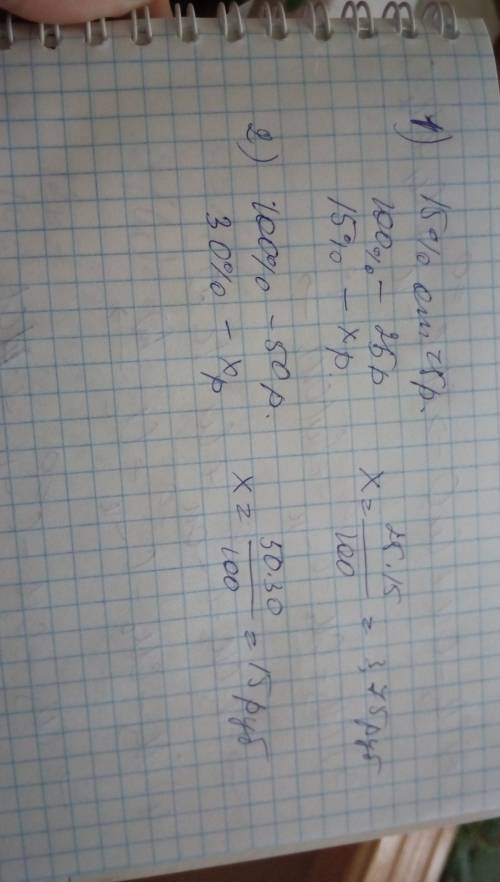 1) 15% от 25р.
100% - 25р
15% - xр
x = 25·15/100 = 3,75руб
2) 100% - 50р.
30% - xр
x = 50·30/100 = 15руб